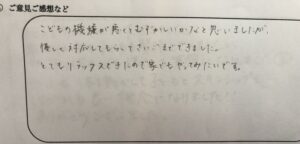 ご意見ご感想など
こどもの機嫌が悪くてむずかしいかなと思いましたが、
優しく対応してもらってさいごまでできました。
とてもリラックスできたので家でもやってみたいです。